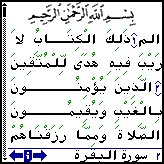 بِسْمِ اللهِ الرَّحْمَنِ الرَّحِيمِ
الم ۝١ ذَلِكَ الْكِتَابُ لَا
رَيْبَ فِيهِ هُدًى لِّلْمُتَّقِينَ
۝٢ الَّذِينَ يُؤْمِنُونَ
بِالْغَيْبِ وَيُقِيمُونَ
الصَّلَاةَ وَمِمَّا رَزَقْنَاهُمْ
سورة البقرة